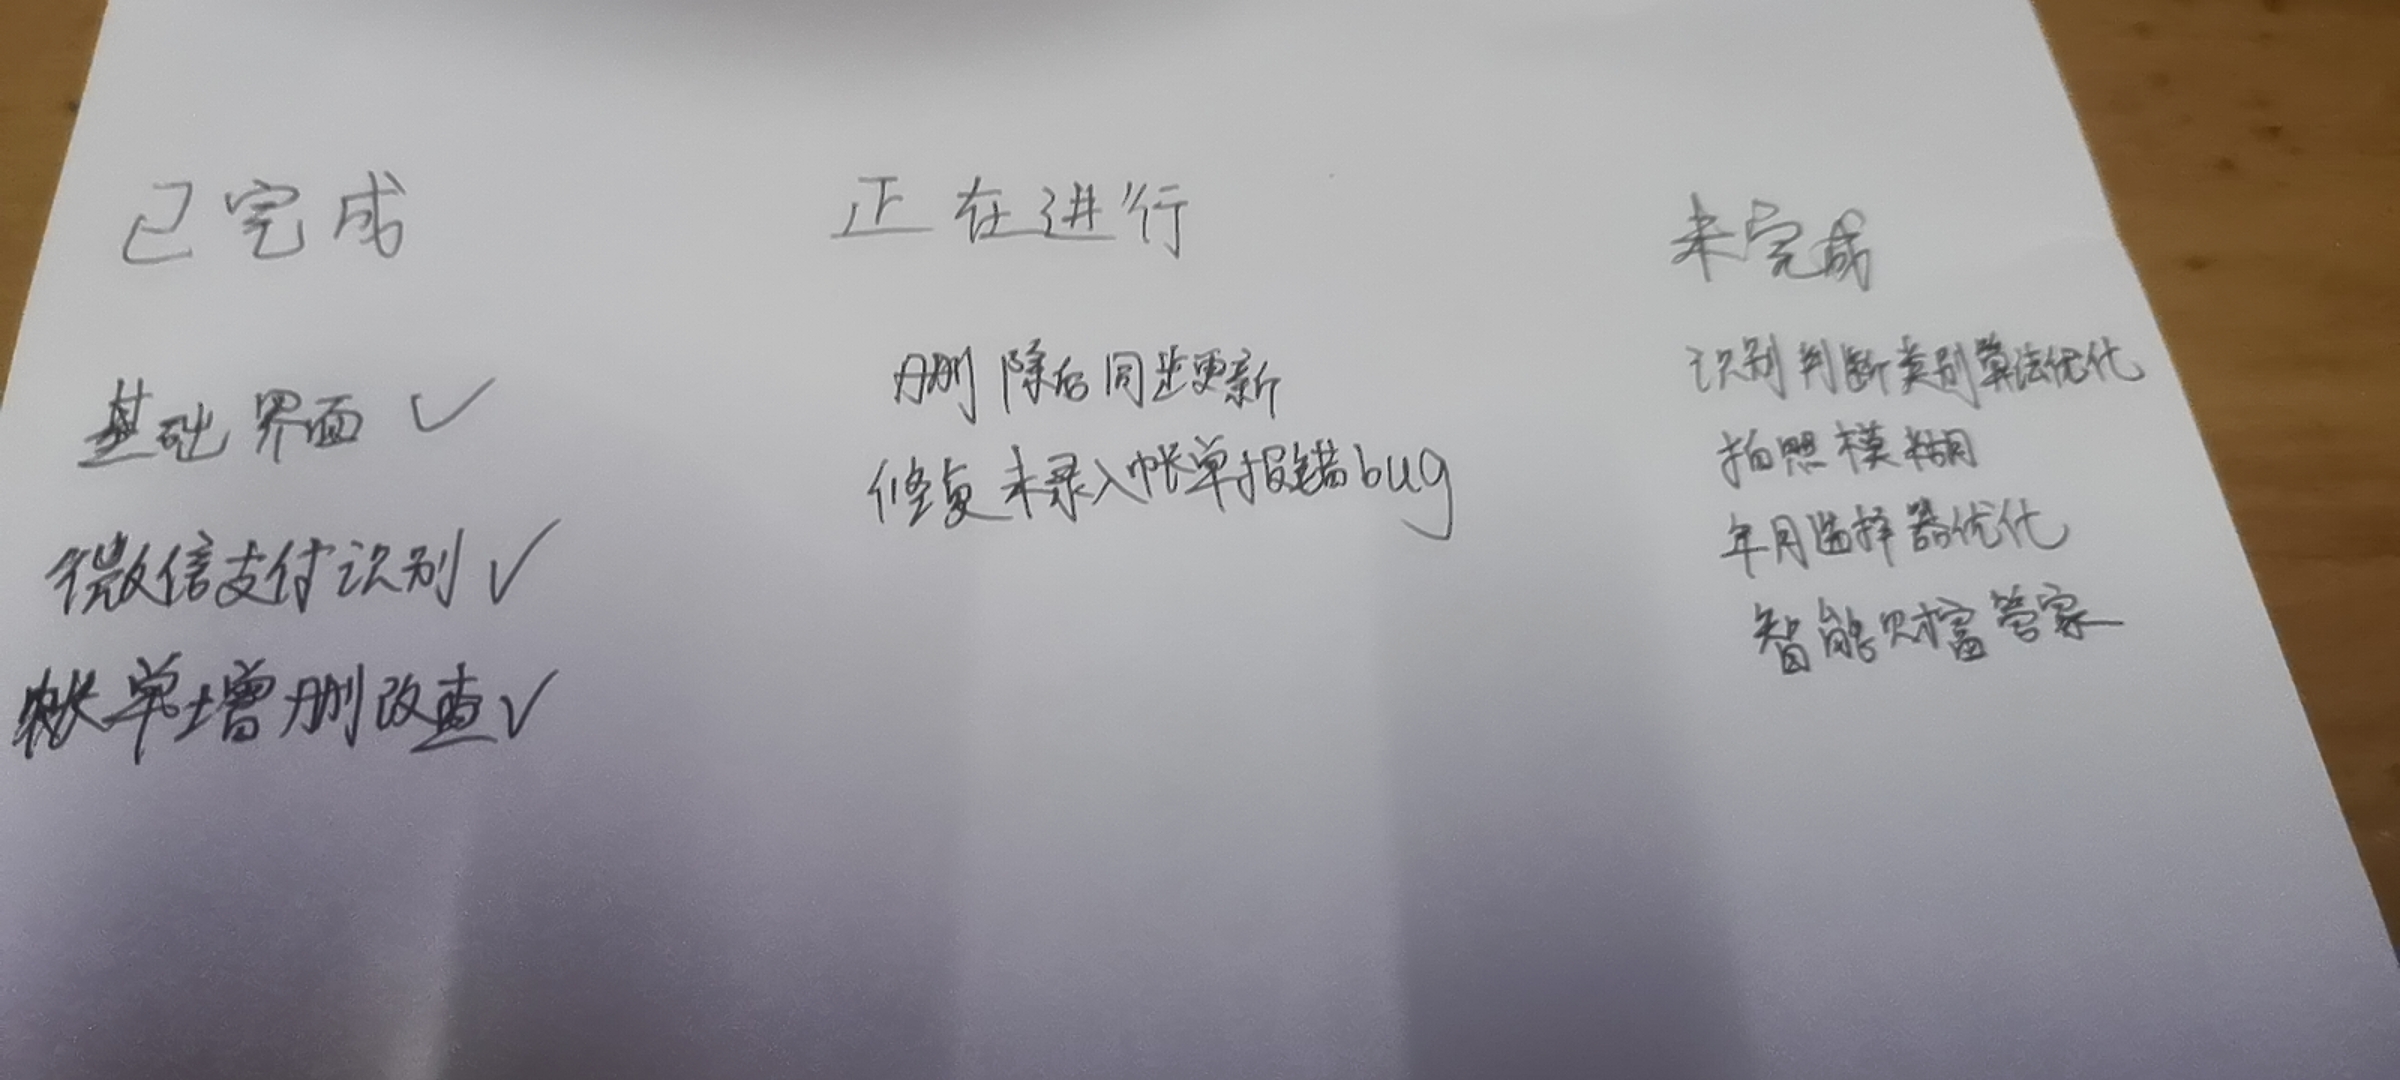 已完成
基础界面 ✓
微信支付识别 ✓
帐单增删改查 ✓
正在进行
删除后同步更新
修复未录入帐单报错bug
未完成
识别判断类别算法优化
拍照模糊
年月选择器优化
智能财富管家